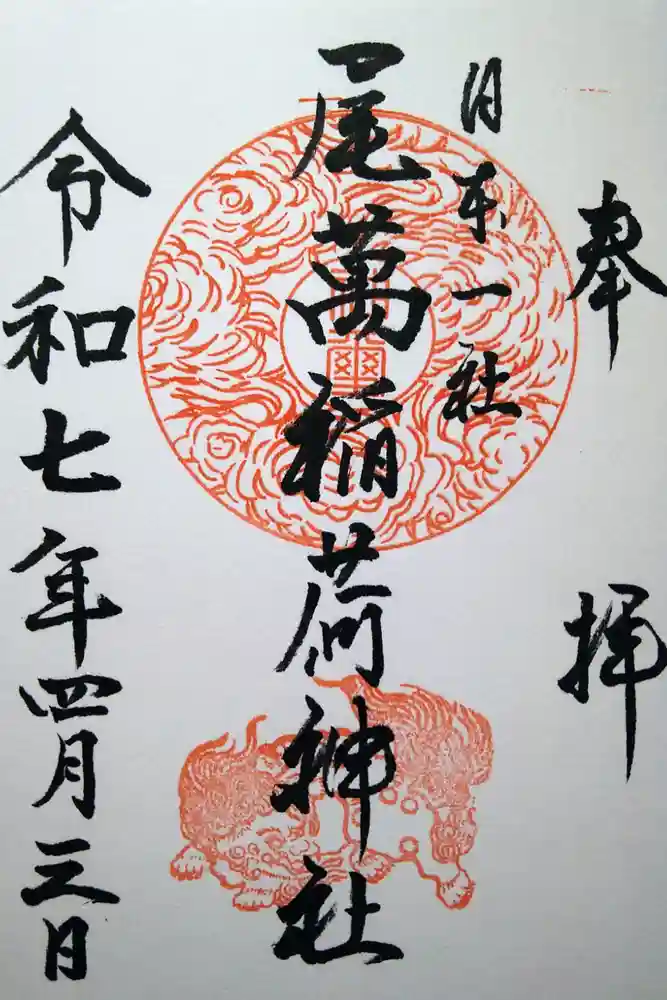 奉拝
日本一社
尾萬稲荷神社
令和七年四月三日